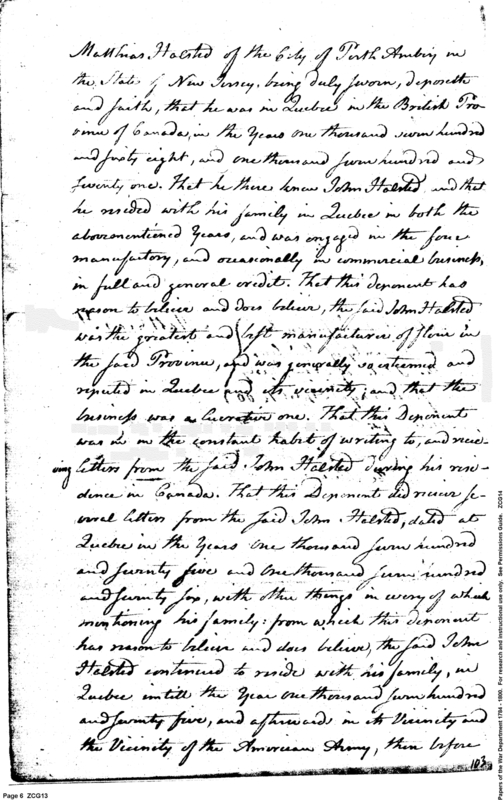 Matthias Halsted of the City of Perth Amboy in
the State of New Jersey, being duly sworn, deposeth
and saith, that he was in Quebec in the British Pro-
vince of Canada, in the Years one thousand seven hundred
and sixty eight, and one thousand seven hundred and
seventy one. That he there knew John Halsted, and that
he resided with his family in Quebec in both the
abovementioned Years, and was engaged in the
manufactory, and occasionally in commercial business,
in full and general credit. That this deponent has
reason to believe and does believe, the said John Halsted
was the greatest and best manufacturer of in
the said Province, and was generally so esteemed and
reputed in Quebec and its vicinity; and that the
business was a lucrative one. That this Deponent
was in the constant habit of writing to, and recei-
ving letters from the said John Halsted during his resi-
dence in Canada. That this Deponent did receive se-
veral letters from the said John Halsted, dated at
Quebec in the Years One thousand seven hundred
and seventy five and One thousand seven hundred
and seventy six, with other things in every of which
mentioning his family: from which this deponent
has reason to believe and does believe, the said John
Halsted continued to reside with his family, in
Quebec untill the Year One thousand seven hundred
and seventy five, and afterward in its Vicinity and
the Vicinity of the American Army, then before
103
Page 6 ZCG13
Papers of the War Department 1784 - 1800. For research and instructional use only. See Permissions Guide. ZCG14